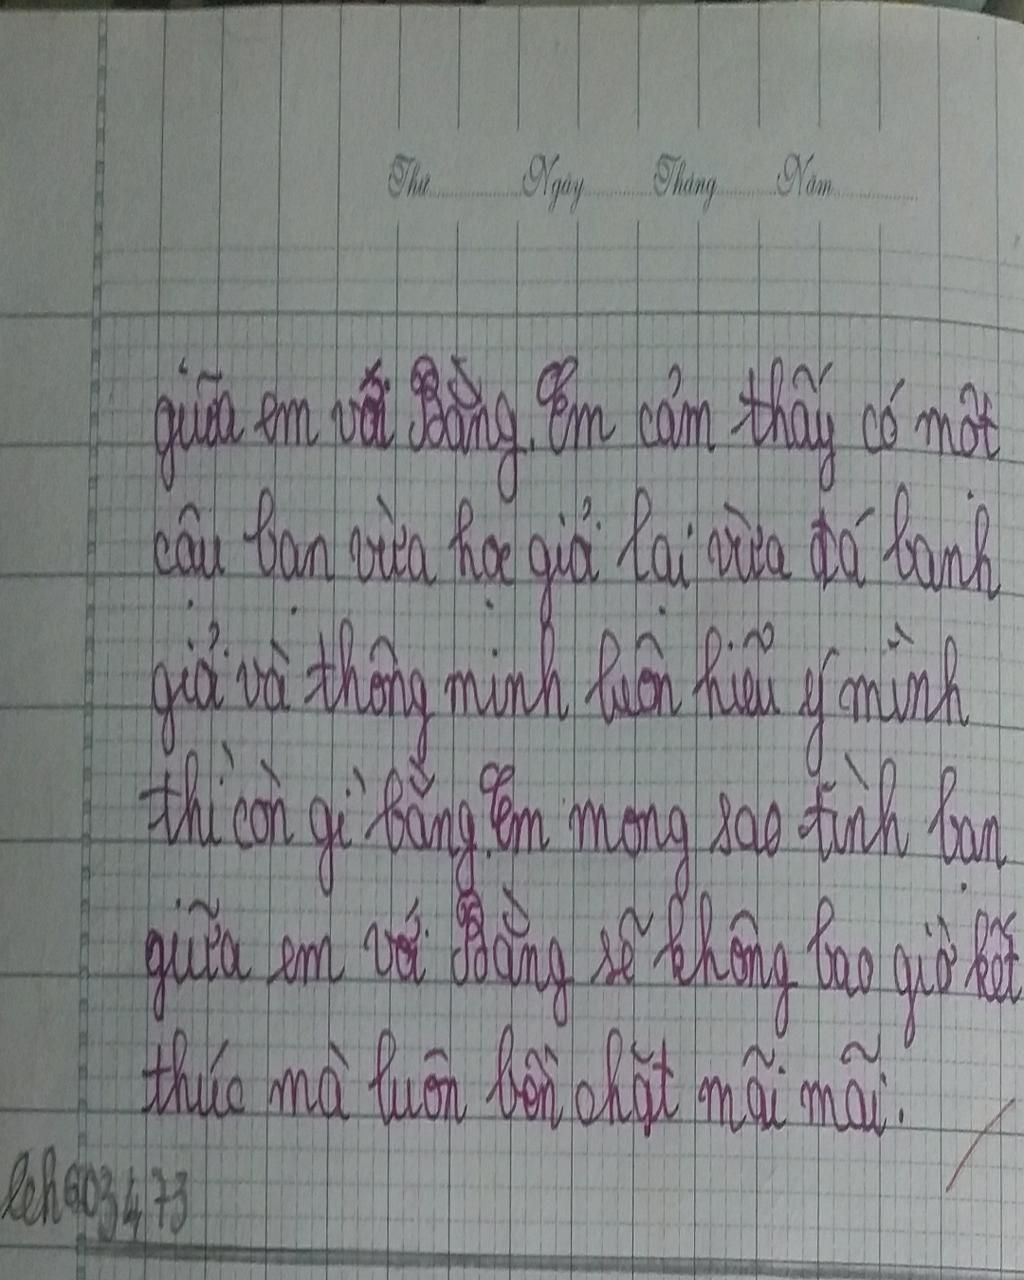 Thứ Ngày Tháng Năm
giữa em với Bằng. Em cảm thấy có một
cậu bạn vừa học giỏi lại vừa đá banh
giỏi và thông minh luôn hiểu ý mình
thì còn gì bằng. Em mong sao tình bạn
giữa em với Bằng sẽ không bao giờ kết
thúc mà luôn bền chặt mãi mãi.